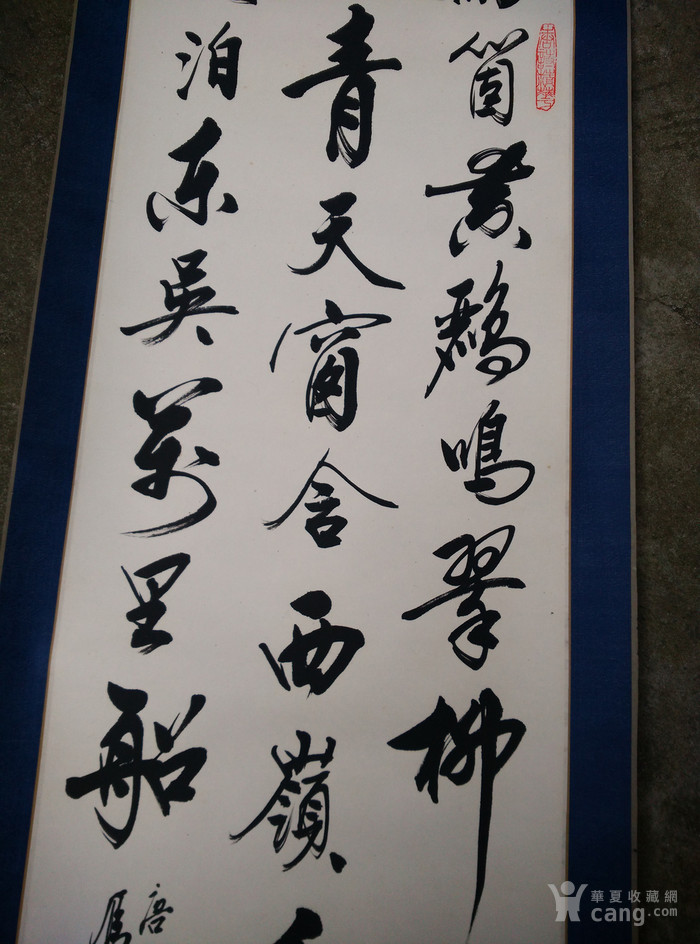 箇黄鸝鳴翠柳
青天窗含西嶺
泊东吳萬里船
華夏收藏網
cang.com